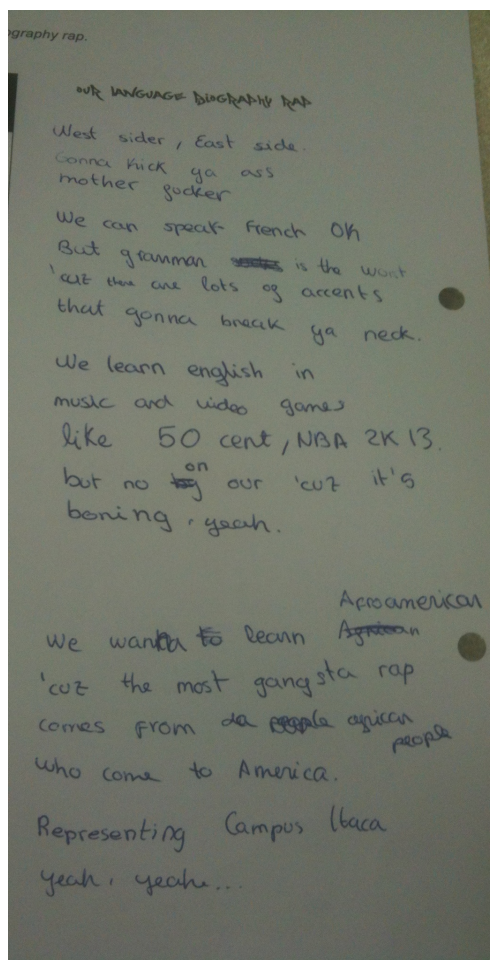 ography rap.
OUR LANGUAGE BIOGRAPHY RAP
West sider, East side.
Gonna kick ya ass
mother fucker
We can speak French OK
But gramman is the worst
'cuz there are lots of accents
that gonna break ya neck.
We learn english in
music and video games
like 50 cent, NBA 2K 13.
but no on our 'cuz it's
boring, yeah.
We wanna learn Afroamerican
'cuz the most gangsta rap
comes from da african people
who come to America.
Representing Campus Itaca
yeah, yeah...